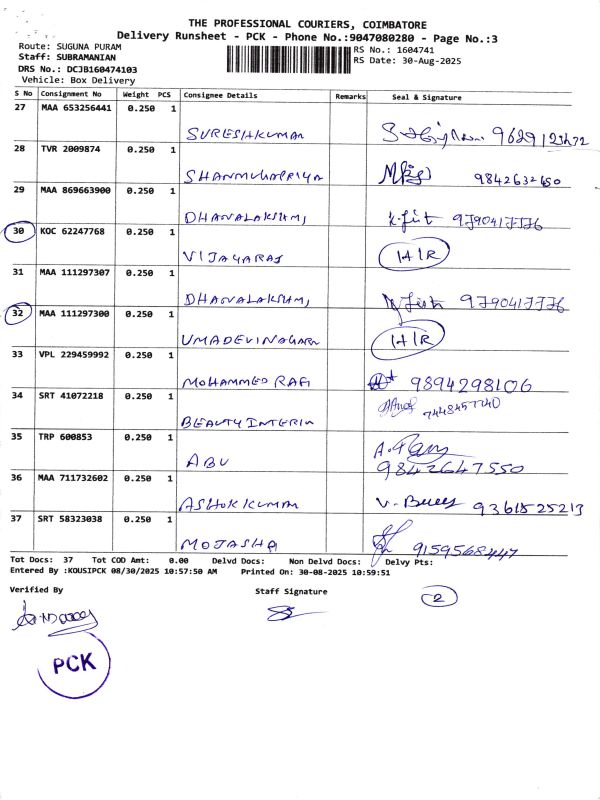 THE PROFESSIONAL COURIERS, COIMBATORE
Delivery Runsheet - PCK - Phone No.:9047080280 - Page No.:3
Route: SUGUNA PURAM
RS No.: 1604741
Staff: SUBRAMANIAN
RS Date: 30-Aug-2025
DRS No.: DCJB160474103
Vehicle: Box Delivery
S No Consignment No Weight PCS Consignee Details Remarks Seal & Signature
27 MAA 653256441 0.250 1
SURESHKUMAR
28 TVR 2009874 0.250 1
SHANMUHAPRIYA 9842632650
29 MAA 869663900 0.250 1
DHANALAKSHMI 9790417776
30 KOC 62247768 0.250 1
VIJAYARAJ HIR
31 MAA 111297307 0.250 1
DHANALAKSHMI 9790417776
32 MAA 111297300 0.250 1
UMADEVINAGARA HIR
33 VPL 229459992 0.250 1
MOHAMMED RAFI 9894298106
34 SRT 41072218 0.250 1
BEAUTY INTERIU
35 TRP 600853 0.250 1
ABU 9842647550
36 MAA 711732602 0.250 1
ASHOKKUMAR 9361525213
37 SRT 58323038 0.250 1
MOJASHA 9159568447
Tot Docs: 37 Tot COD Amt: 0.00 Delvd Docs: Non Delvd Docs: Delvy Pts:
Entered By :KOUSIPCK 08/30/2025 10:57:50 AM Printed On: 30-08-2025 10:59:51
Verified By Staff Signature 2
PCK